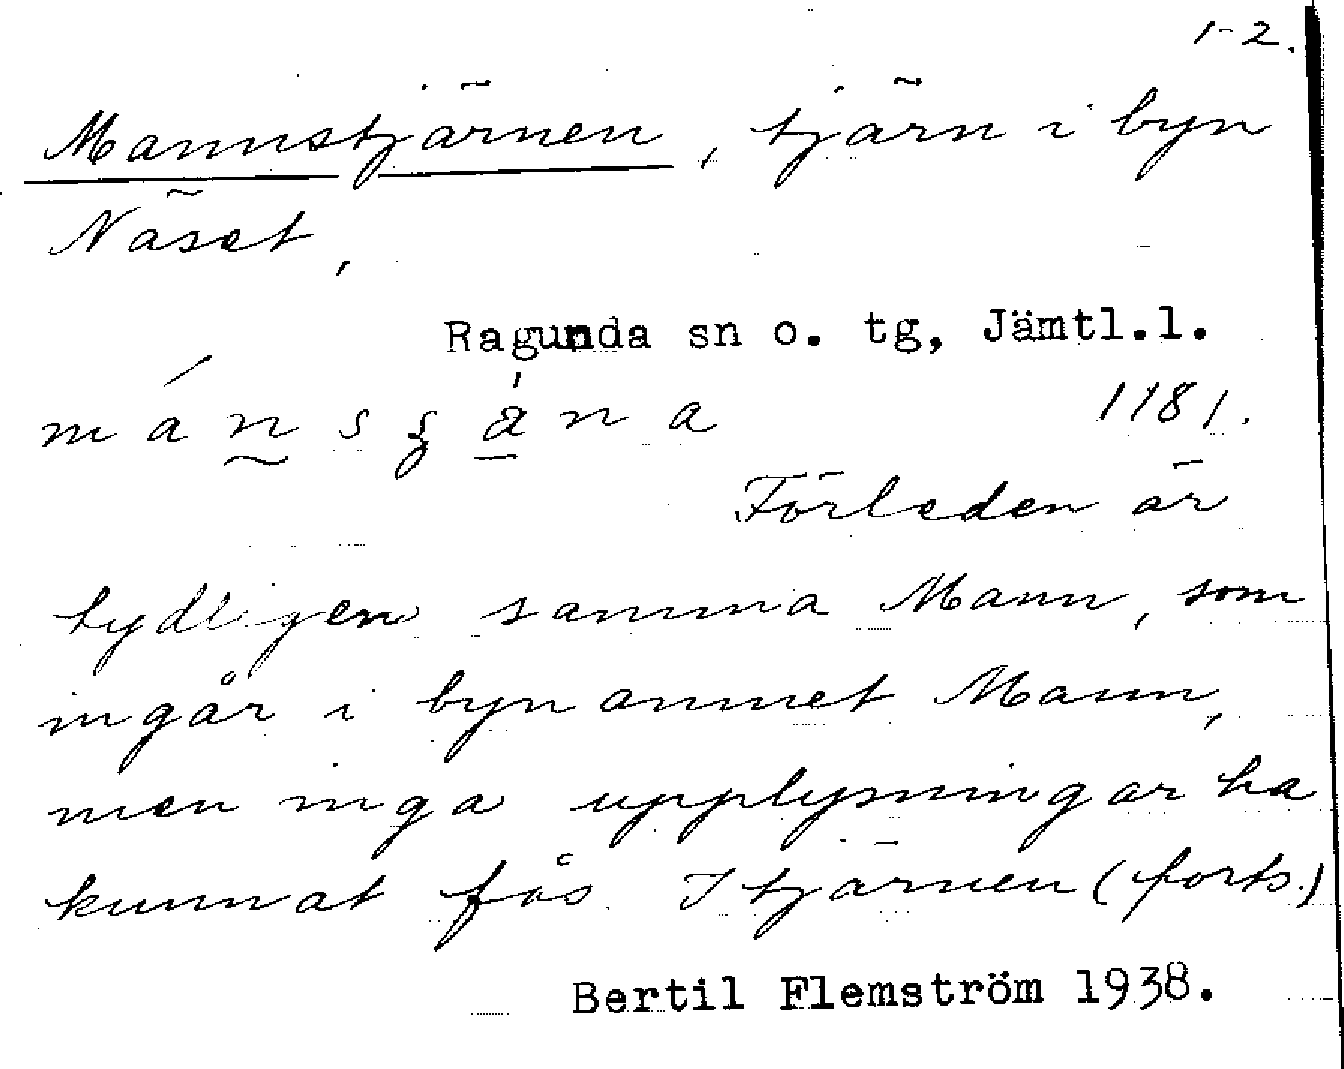 1-2.
Mannstjärnen, tjärn i byn
Näset,
Ragunda sn o. tg, Jämtl.l.
1181.
Förleden är
tydligen samma Mann, som
ingår i bynamnet Mann,
men inga upplysningar ha
kunnat fås. I tjärnen (forts.)
Bertil Flemström 1938.